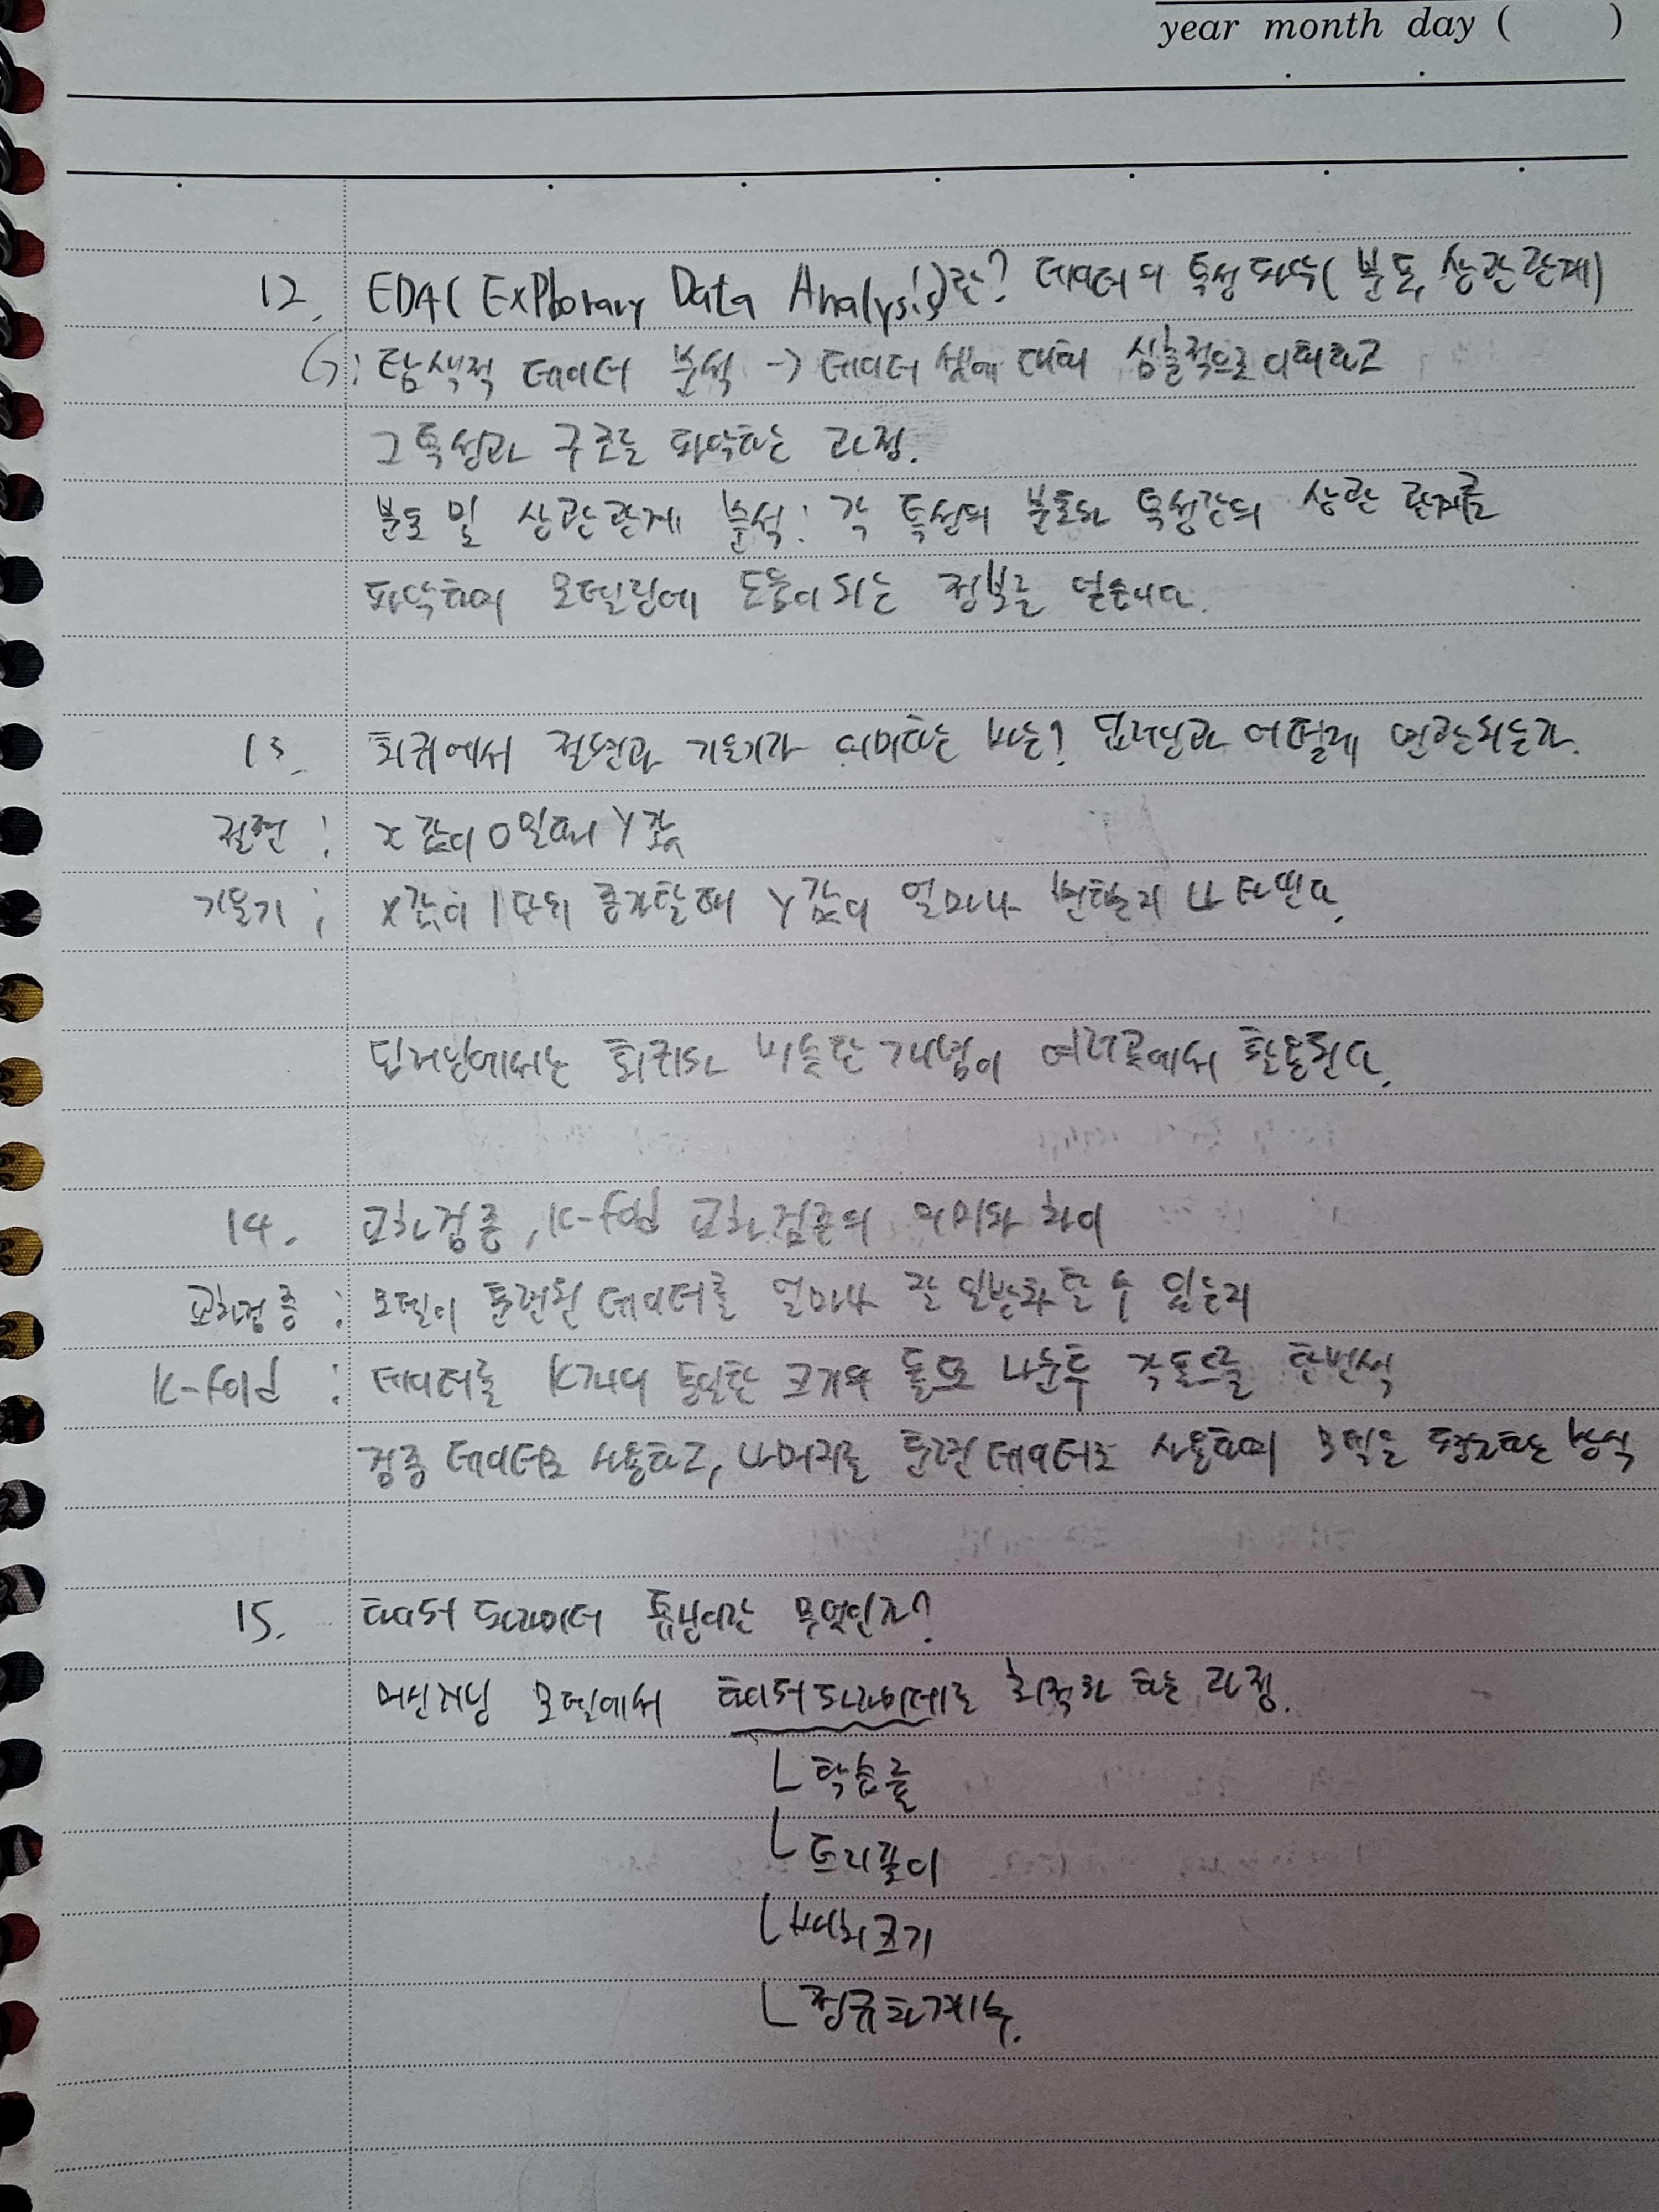 year month day ( )
12. EDA( ExPloorary Data Analysis)란? 데이터의 특성 파악( 분포, 상관관계)
: 탐색적 데이터 분석 → 데이터 셋에 대해 심층적으로 이해하고
그 특성과 구조를 파악하는 과정.
분포 및 상관관계 분석: 각 특성의 분포와 특성간의 상관 관계를
파악하여 모델링에 도움이 되는 정보를 얻는다.
13. 회귀에서 절편과 기울기가 의미하는 바는? 딥러닝과 어떻게 연관되는가.
절편 : x 값이 0일때 Y값
기울기 : x값이 1단위 증가할때 Y값이 얼마나 변할지 나타낸다.
딥러닝에서는 회귀와 비슷한 개념이 여러곳에서 활용된다.
14. 교차검증, K-fold 교차검증의 의미와 차이
교차검증 : 모델이 훈련된 데이터를 얼마나 잘 일반화 할 수 있는지
K-fold : 데이터를 K개의 동일한 크기의 폴드로 나눈후 각폴드를 한번씩
검증 데이터로 사용하고, 나머지를 훈련데이터로 사용하여 모델을 평가하는 방식
15. 하이퍼 파라미터 튜닝이란 무엇인가?
머신러닝 모델에서 하이퍼파라미터를 최적화 하는 과정.
ㄴ 학습률
ㄴ 트리깊이
ㄴ 배치크기
ㄴ 정규화계수.